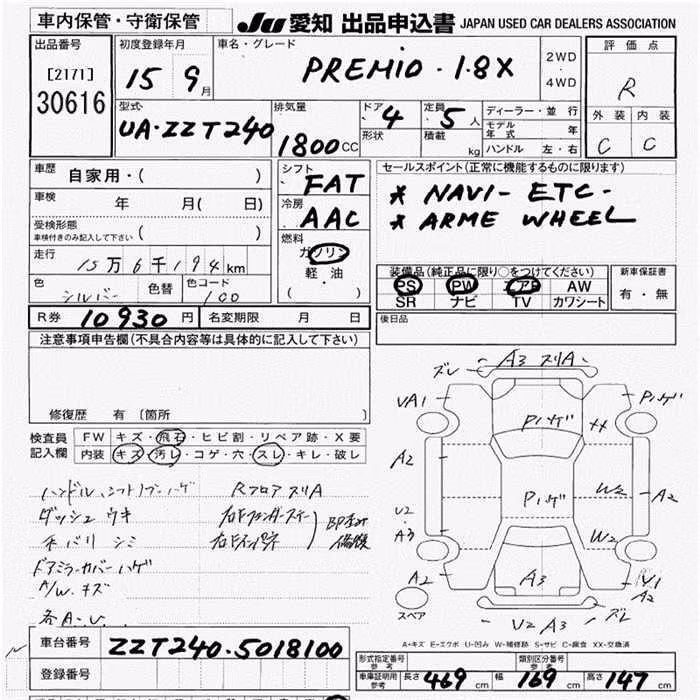 車内保管・守衛保管
JU 愛知 出品申込書 JAPAN USED CAR DEALERS ASSOCIATION
出品番号
[2171]
30616
初度登録年月
15 9月
車名・グレード
PREMIO・1.8X
2WD
・
4WD
評価点
R
外装 内装
C C
型式
UA-ZZT240
排気量
1800CC
ドア 4
形状
定員 5 人
積載 kg
ディーラー・並行
モデル年式 年
ハンドル 左・右
車歴
自家用・( )
車検
年 月( 日)
受検形態
車検付きのみ記入して下さい ( )
走行
15万6千194km
色
シルバー
色替
色コード
100
シフト
FAT
冷房
AAC
燃料
ガソリン
軽・油
( ・ )
セールスポイント(正常に機能するものに限ります)
* NAVI- ETC-
* ARME WHEEL
装備品(純正品に限り○をつけてください)
PS PW エアB AW
SR ナビ TV カワシート
新車保証書
有・無
後日品
R券 10930円
名変期限 月 日
注意事項申告欄(不具合内容等は具体的に記入して下さい)
修復歴 有 〔箇所
検査員
記入欄
FW キズ・飛石・ヒビ割・リペア跡・X要
内装 キズ・汚レ・コゲ・穴・スレ・キレ・破レ
ハンドル,シフトノブハゲ RフロアスリA
ダッシュウキ
天バリシミ
ドアミラーカバーハゲ
A/W.キズ
各A・U.
A3スリA
ズレ
UA1
Pハゲ
Pハゲ
XX
A2
Pハゲ
W2
A2
U2
・
A3
W2
A2
A3
Y1
A2
ズレ
U2 A3
スペア
A=キズ E=エクボ U=凹み W=補修跡 S=サビ C=腐食 XX=交換済
車台番号
ZZT240-5018100
登録番号
形式指定番号
参考
類別区分番号
参考
車庫証明用
参考
長さ 469cm 幅 169cm 高さ 147cm